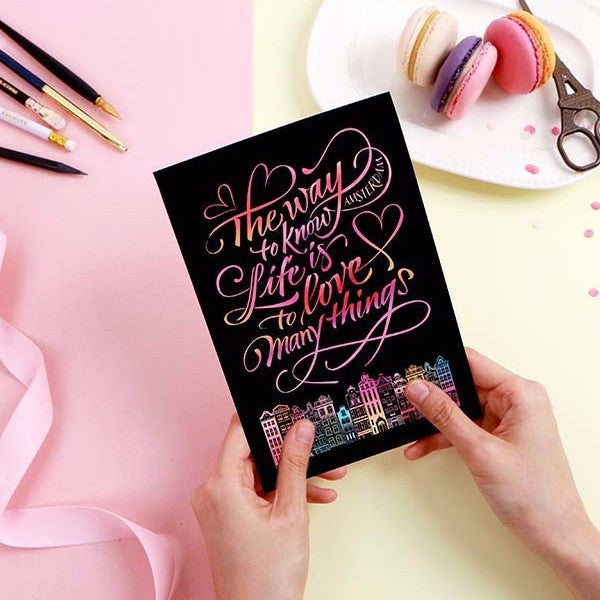 The way
to know
AMSTERDAM
Life is
to love
many things